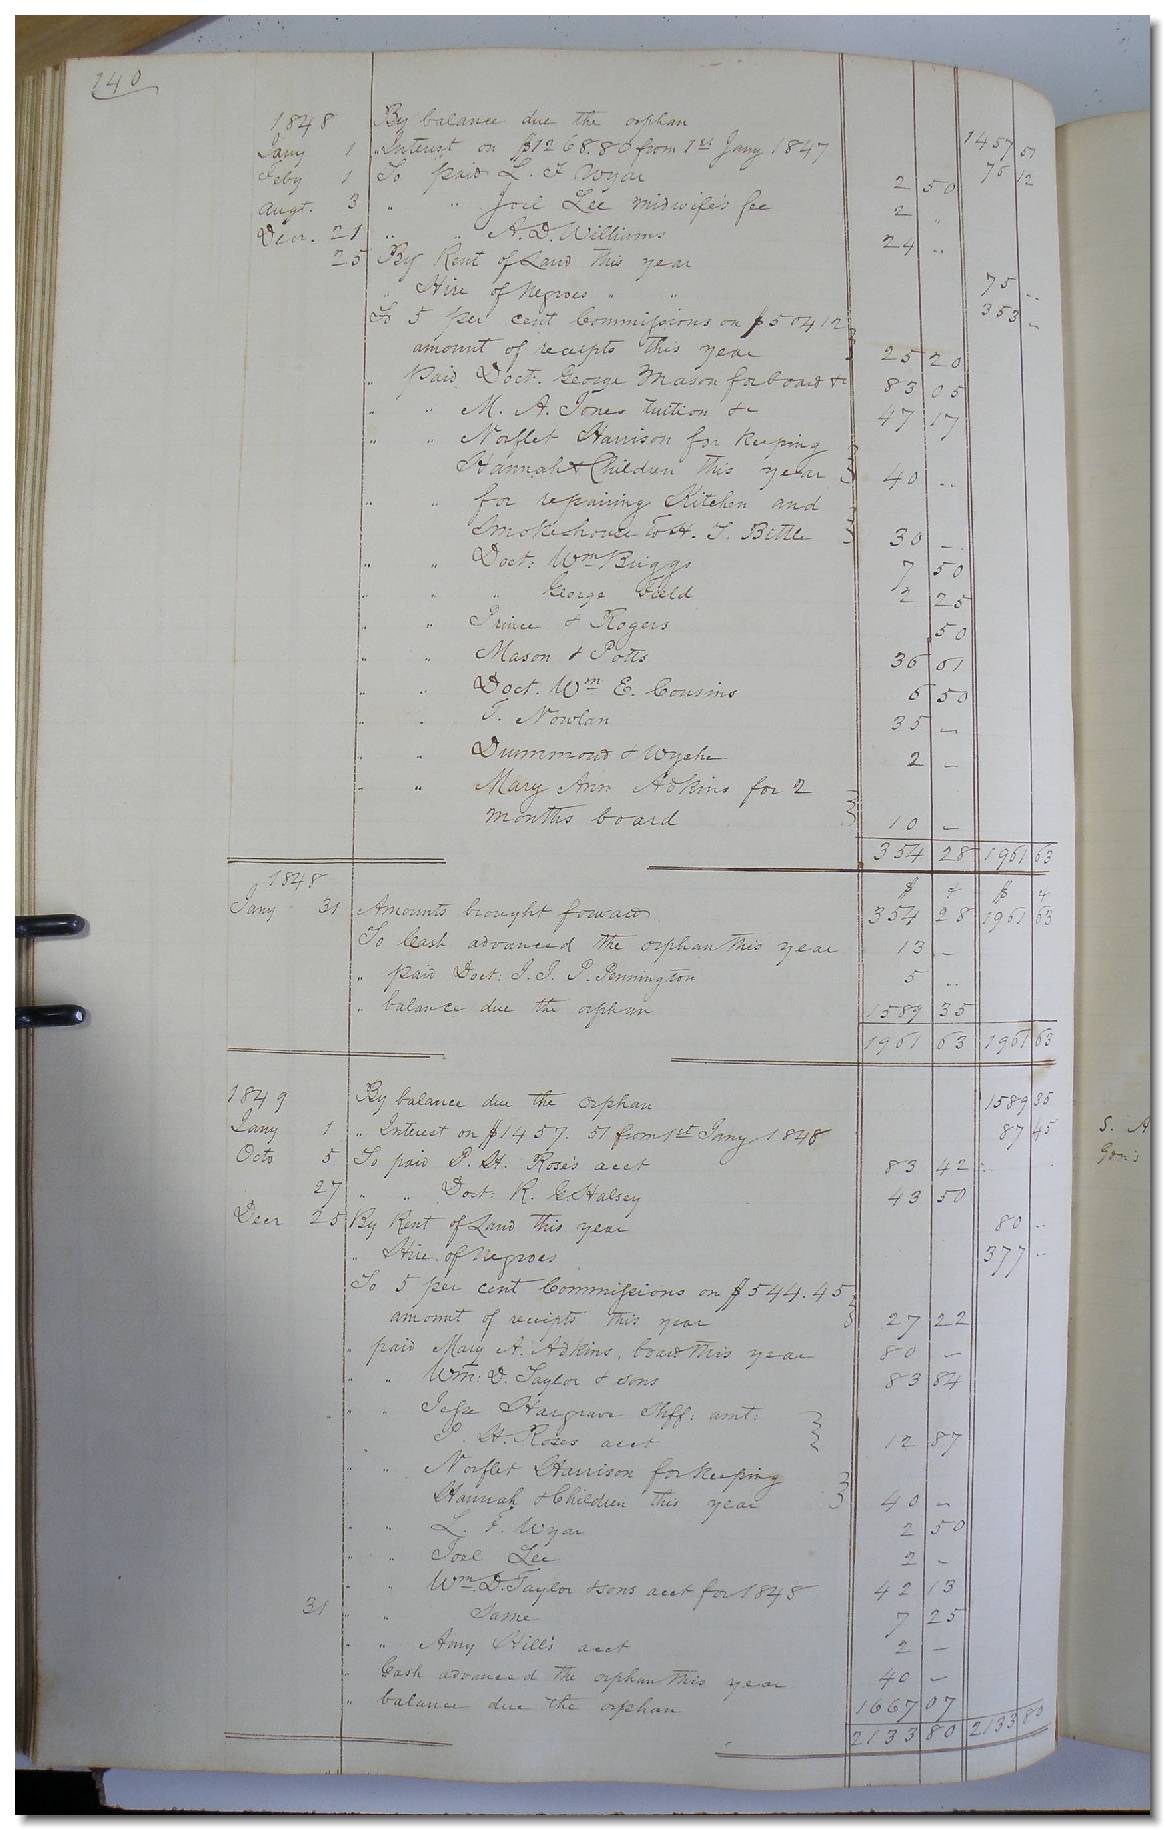 140
1848 By balance due the orphan 1457 51
Jany 1 " Interest on $1268.80 from 1st Jany 1847 76 12
Feby 1 To paid L. F. Wyar 2 50
Augt. 3 " " Joel Lee midwife's fee 2 "
Decr. 21 " " A. D. Williams 24 "
25 By Rent of Land this year 75 "
" Hire of Negroes " " 353 "
To 5 per cent Commissions on $504 12
amount of receipts this year 25 20
" paid Doct. George Mason for board & 83 05
" " M. A. Jones tuition &c 47 17
" " Norflet Harrison for keeping
Hannah & Children this year 40 "
" " for repairing Kitchen and
Smokehouse to H. T. Bittle 30 —
" " Doct: Wm Briggs 7 50
" " " George Field 2 25
" " Prince & Rogers 50
" " Mason & Potts 36 61
" " Doct. Wm E. Cousins 6 50
" " T. Nowlan 35 —
" " Drummond & Wyche 2 —
" " Mary Ann Adkins for 2
months board 10 —
354 28 1961 63
1848 $ ¢ $ ¢
Jany 31 Amounts brought forward 354 28 1961 63
To Cash advanced the orphan this year 13 —
" paid Doct: J. J. P. Pennington 5 "
" balance due the orphan 1589 35
1961 63 1961 63
1849 By balance due the orphan 1589 35
Jany 1 " Interest on $1457. 51 from 1st Jany 1848 87 45
Octo 5 To paid P. H. Rose's acct 83 42
27 " " Doct. R. G. Halsey 43 50
Decr 25 By Rent of Land this year 80 "
" Hire of Negroes 377 "
To 5 per cent Commissions on $544.45
amount of receipts this year 27 22
" paid Mary A. Adkins, board this year 80 —
" " Wm: D. Taylor & sons 83 84
" " Jesse Hargrave Shff: amt:
P. H. Roses acct 12 87
" " Norflet Harrison for keeping
Hannah & Children this year 40 —
" " L. F. Wyar 2 50
" " Joel Lee 2 —
" " Wm D. Taylor & sons acct for 1848 42 13
31 " " Same 7 25
" " Amy Hill's acct 2 —
" Cash advanced the orphan this year 40 —
" balance due the orphan 1667 07
2133 80 2133 80
S. A